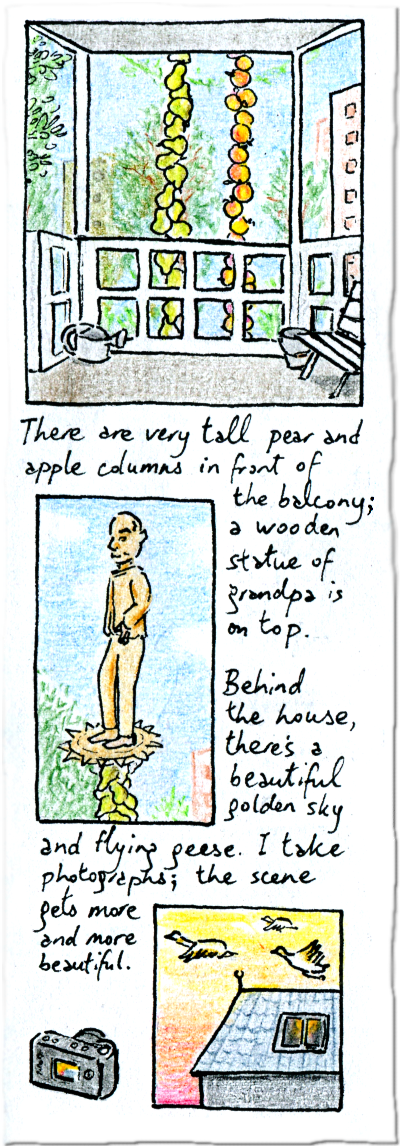 There are very tall pear and
apple columns in front of
the balcony;
a wooden
statue of
grandpa is
on top.
Behind
the house,
there's a
beautiful
golden sky
and flying geese. I take
photographs; the scene
gets more
and more
beautiful.